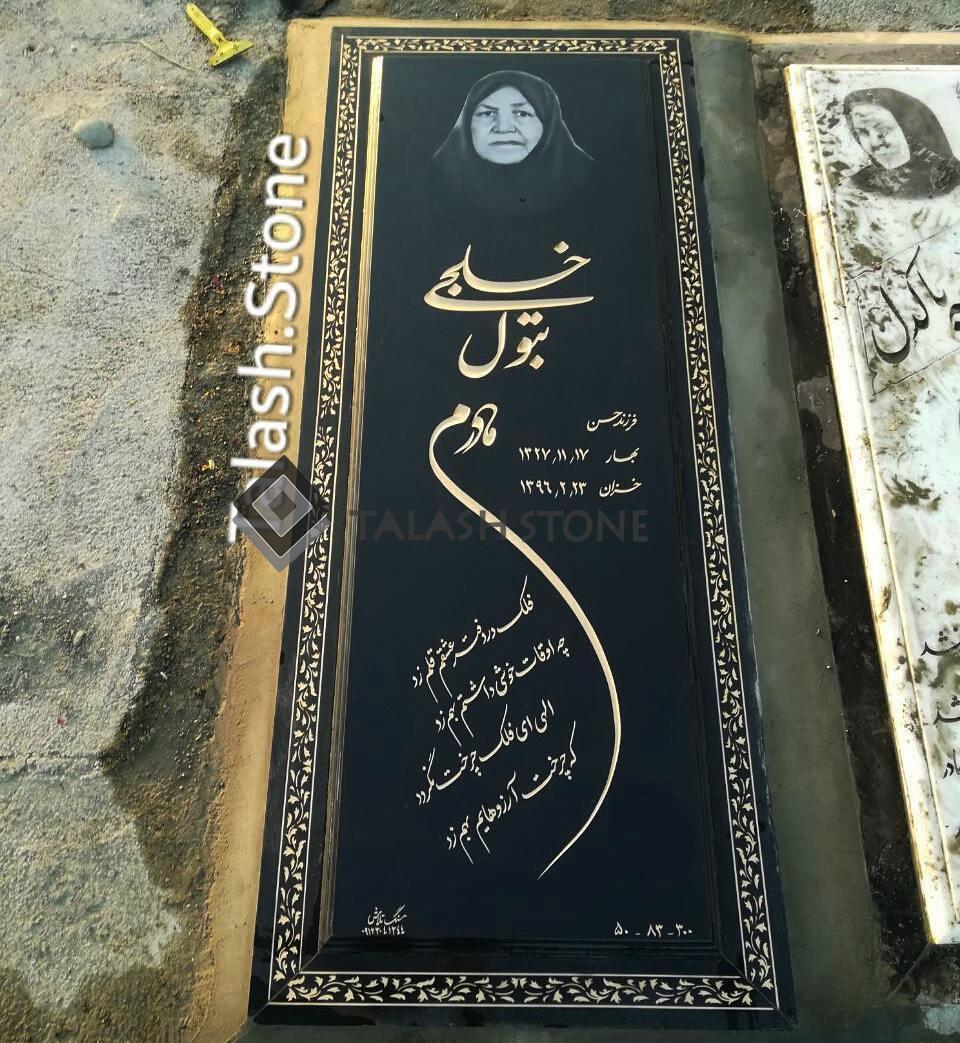 خلجی
بتول
مادرم
فرزند حسن
بهار ۱۳۲۷٫۱۱٫۱۷
خزان ۱۳۹۶٫۲٫۲۳
فلک در دفتر عشقم قلم زد
چه اوقات خوشی داشتم بهم زد
الهی ای فلک چرخت نگردد
که چرخت آرزوهایم بهم زد
سنگ تلاش
۵۰ - ۸۳ - ۳۰۰
Talash.Stone
TALASH STONE
پاکدل
مادر